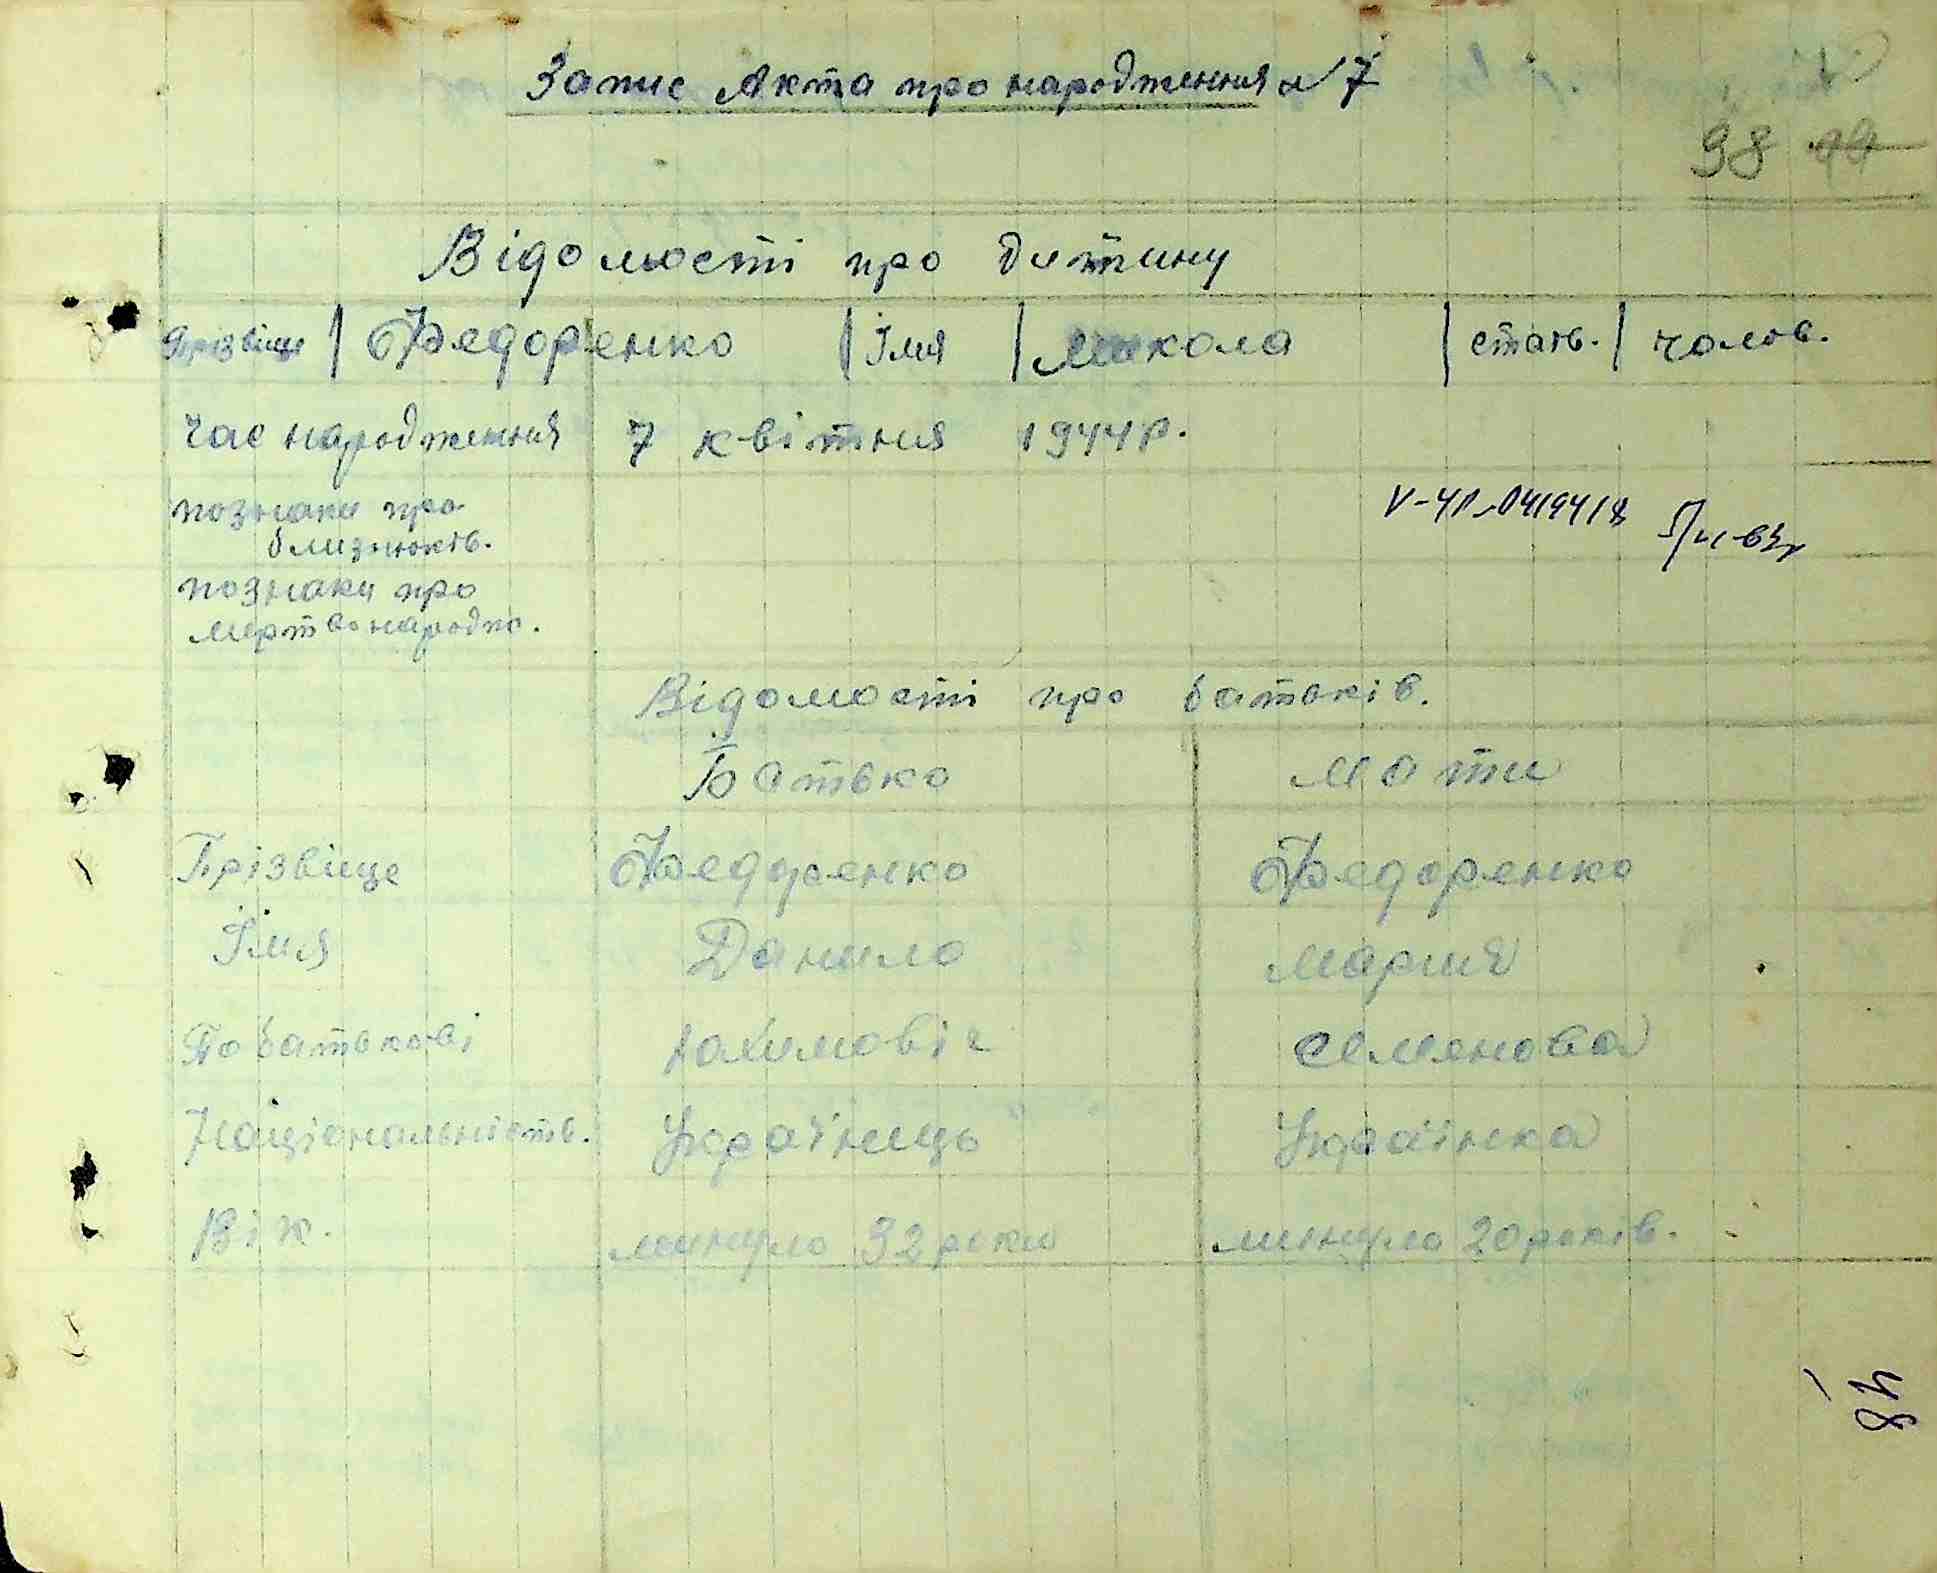 Запис Акта про народження N 7
98 19
Відомості про дитину
Прізвіще | Федоренко | Імя | Микола | стать. | чолов.
Час народження 7 квітня 1944 р.
познаки про
близнюків.
V-УР 041941
познаки про
мертвонародж.
Відомості про батьків.
Батько Мати
Прізвіще Федоренко Федоренко
Імя Данило Мария
По батькові Юхимовіч Семенова
Національність. Українець Українка
Вік. минуло 32 роки минуло 20 років.
48